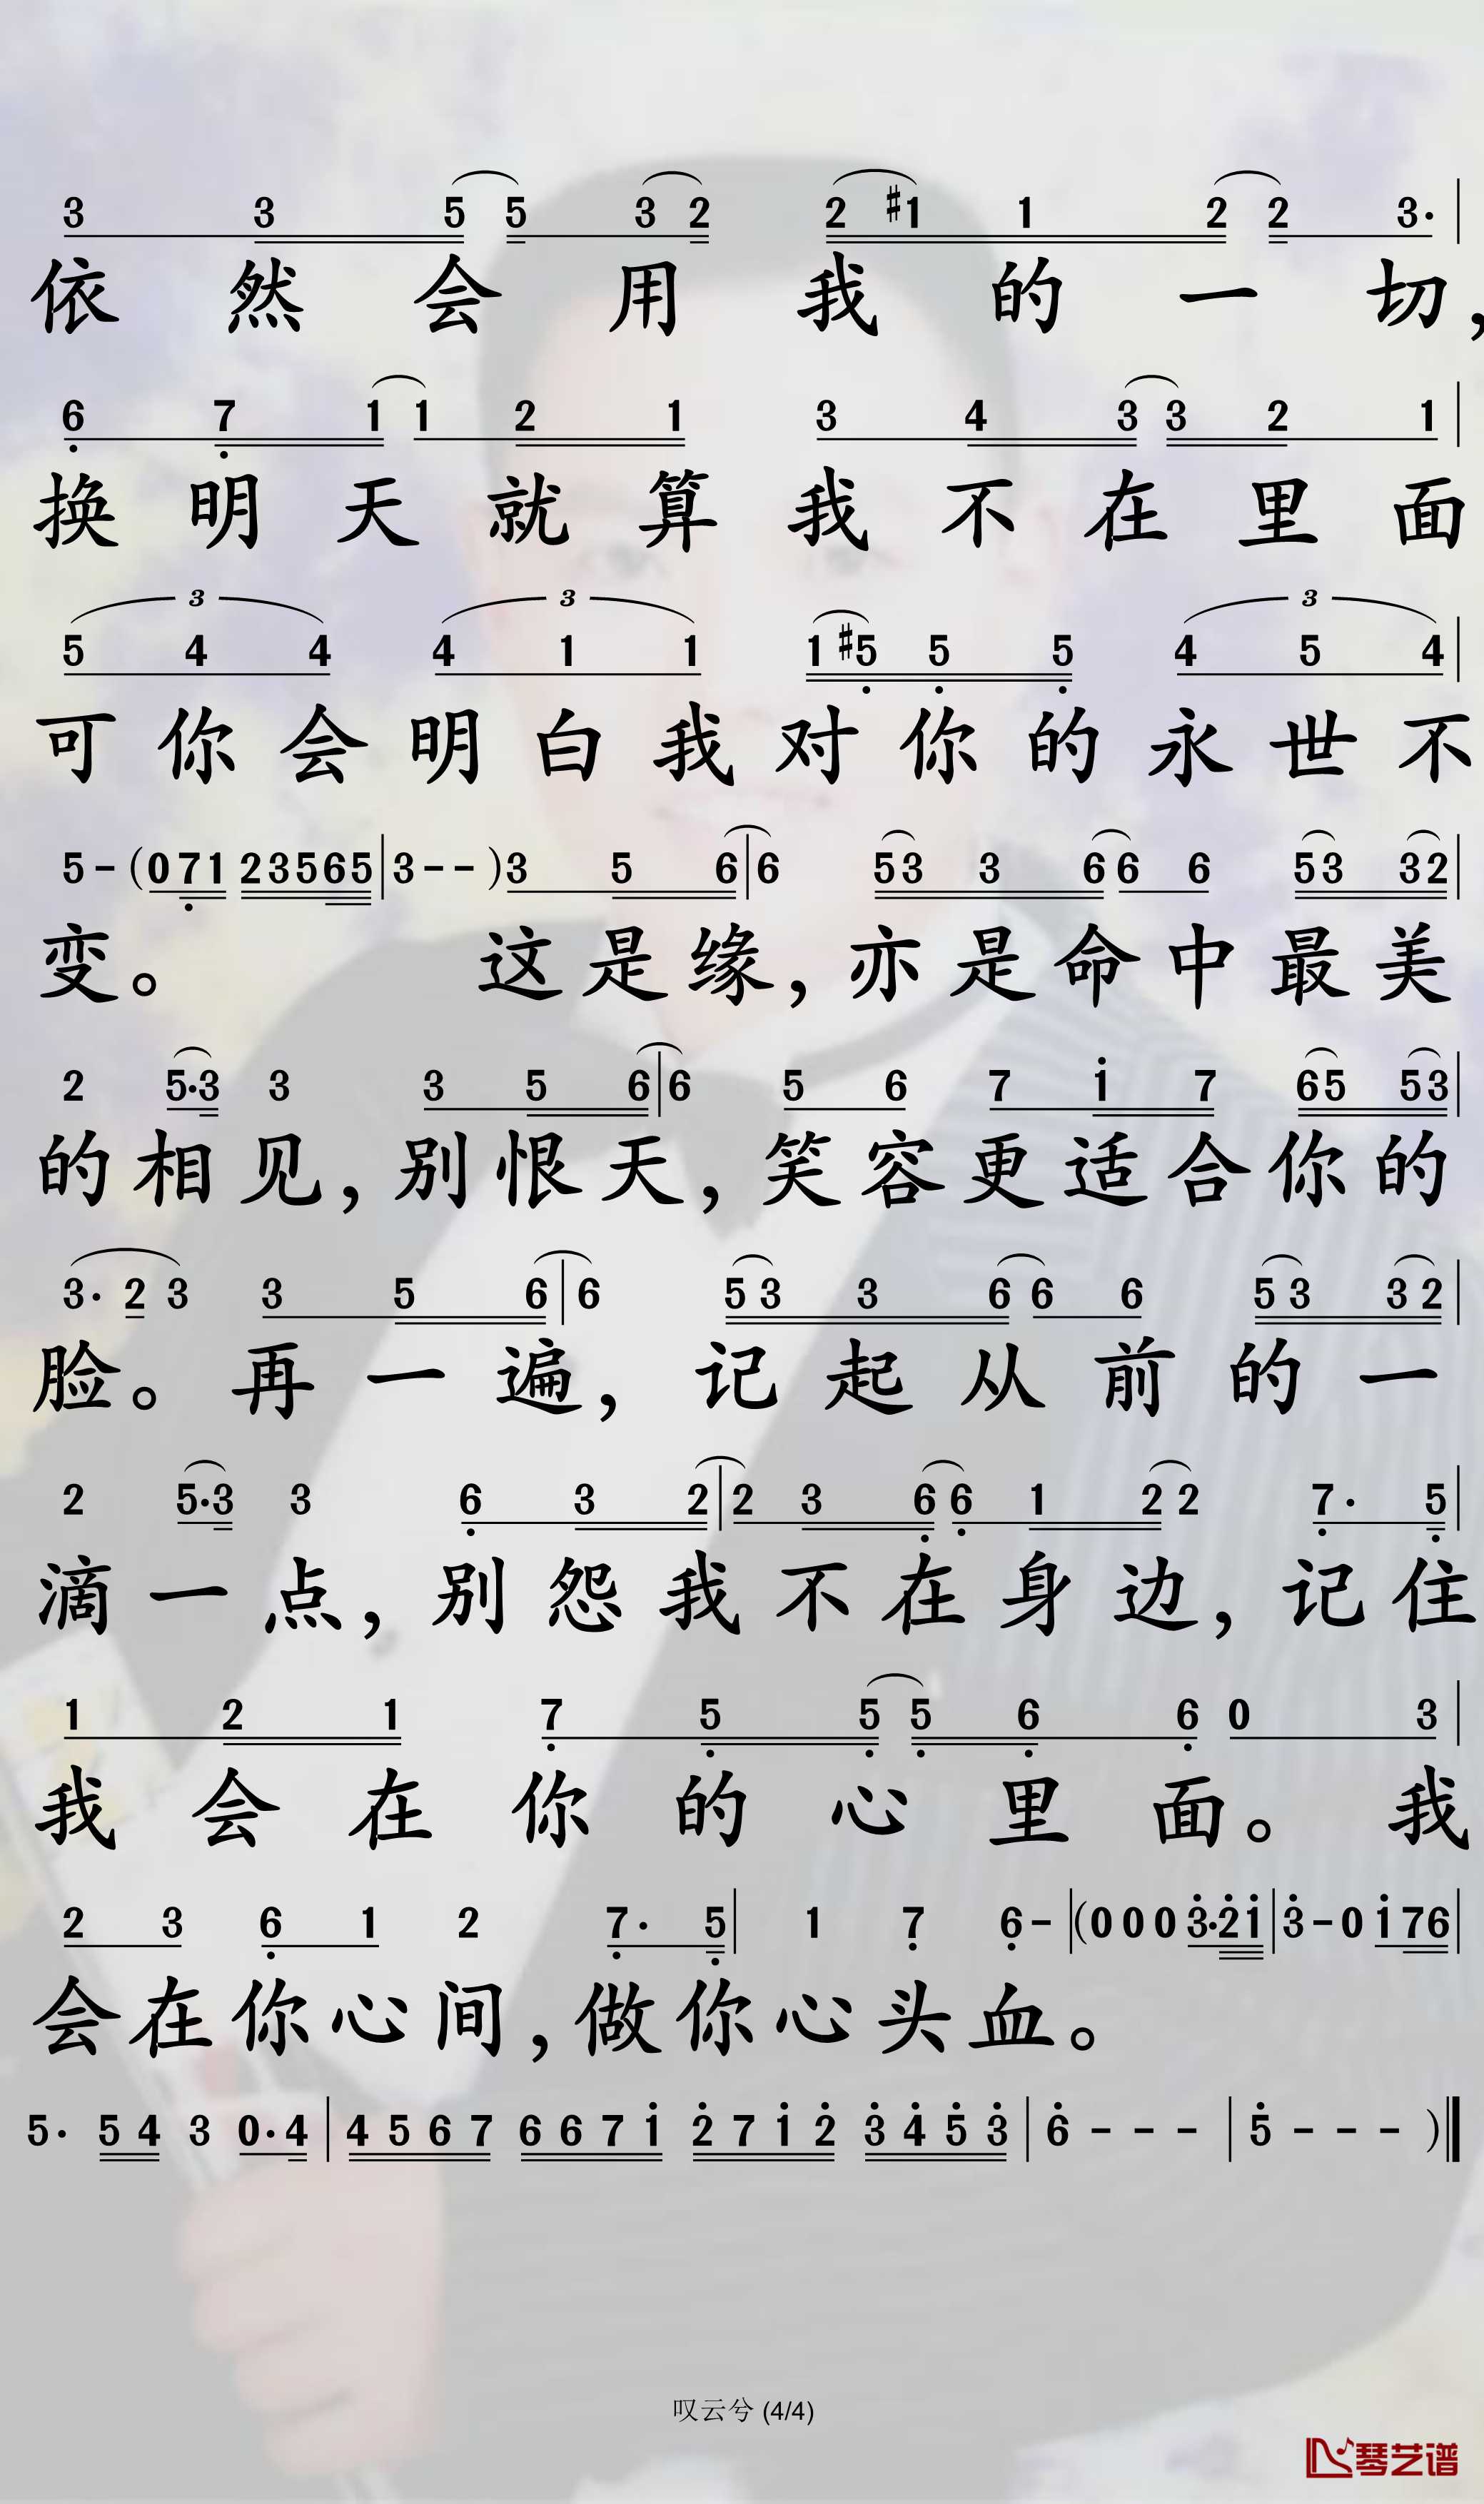 3 3 5 5 3 2 2 #1 1 2 2 3· |
依然会用我的一切，
6 7 1 1 2 1 3 4 3 3 2 1 |
换明天就算我不在里面
3 3 3
5 4 4 4 1 1 1 #5 5 5 4 5 4 |
可你会明白我对你的永世不
5 – (0 7 1 2 3 5 6 5 | 3 – – ) 3 5 6 | 6 5 3 3 6 6 6 5 3 3 2 |
变。 这是缘，亦是命中最美
2 5·3 3 3 5 6 | 6 5 6 7 1 7 6 5 5 3 |
的相见，别恨天，笑容更适合你的
3· 2 3 3 5 6 | 6 5 3 3 6 6 6 5 3 3 2 |
脸。再一遍，记起从前的一
2 5·3 3 6 3 2 | 2 3 6 6 1 2 2 7· 5 |
滴一点，别怨我不在身边，记住
1 2 1 7 5 5 5 6 6 0 3 |
我会在你的心里面。我
2 3 6 1 2 7· 5 | 1 7 6 – | (0 0 0 3·2 1 | 3 – 0 1 7 6 |
会在你心间，做你心头血。
5· 5 4 3 0·4 | 4 5 6 7 6 6 7 1 2 7 1 2 3 4 5 3 | 6 – – – | 5 – – – )
叹云兮 (4/4)
琴艺谱